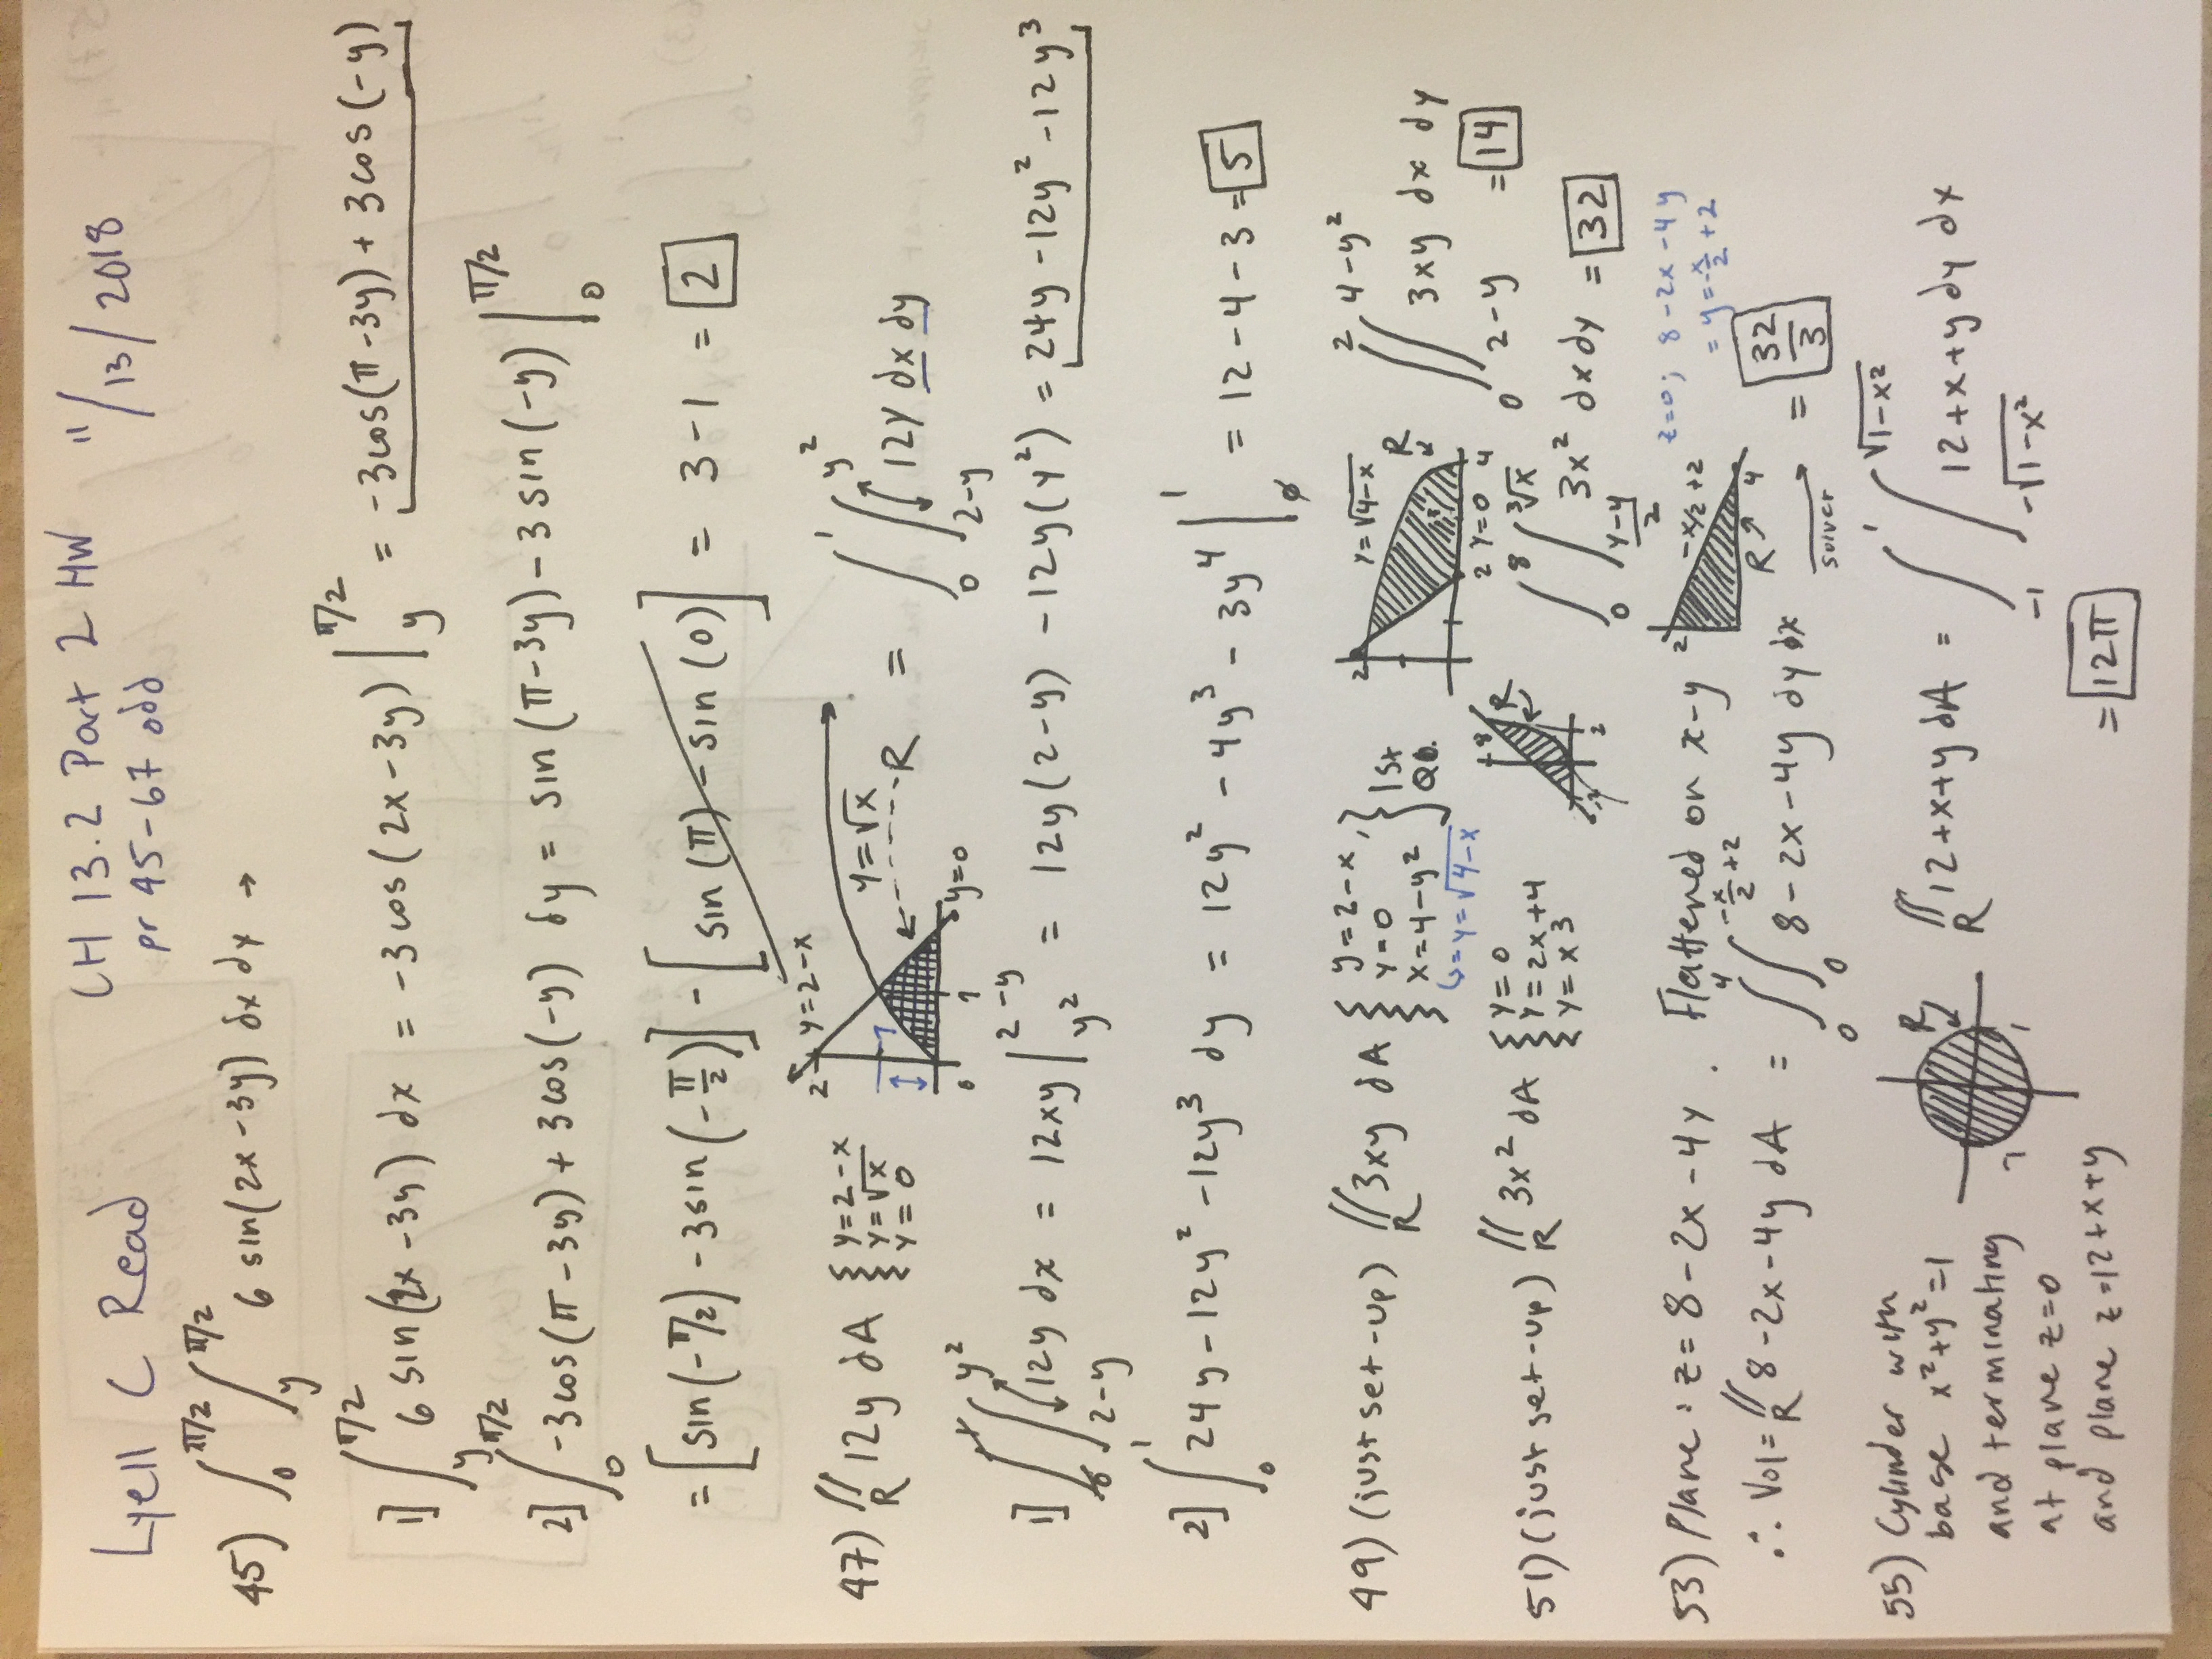 Lyell C Read
CH 13.2 Part 2 HW
pr 45-67 odd
11/13/2018
45) ∫₀^{π/2} ∫_y^{π/2} 6 sin(2x-3y) dx dy →
1] ∫_y^{π/2} 6 sin(2x-3y) dx = -3cos(2x-3y) |_y^{π/2} = -3cos(π-3y) + 3cos(-y)
2] ∫₀^{π/2} -3cos(π-3y) + 3cos(-y) dy = sin(π-3y) - 3sin(-y) |₀^{π/2}
= [sin(-π/2) - 3sin(-π/2)] - [sin(π) - sin(0)] = 3-1 = 2
47) ∬_R 12y dA { y=2-x
y=√x
y=0
2
y=2-x
1
y=√x
R
0
1
y=0
= ∫₀^1 ∫_{2-y}^{y²} 12y dx dy
1] ∫₀^1 ∫_{2-y}^{y²} 12y dx = 12xy |_{y²}^{2-y} = 12y(2-y) - 12y(y²) = 24y - 12y² - 12y³
2] ∫₀^1 24y - 12y² - 12y³ dy = 12y² - 4y³ - 3y⁴ |₀^1 = 12-4-3 = 5
49) (just set-up) ∬_R 3xy dA { y=2-x,
y=0
x=4-y² } 1st
QD.
↳ = y=√4-x
2
y=√4-x
R
2 y=0 4
∫₀^2 ∫_{2-y}^{4-y²} 3xy dx dy
= 14
51) (just set-up) ∬_R 3x² dA { y=0
y=2x+4
y=x3
8
R
-2
2
∫₀^8 ∫_{(y-4)/2}^{∛x} 3x² dx dy = 32
53) Plane: z=8-2x-4y. Flattened on x-y
2
-x/2+2
R
4
z=0; 8-2x-4y
= y=-x/2+2
∴ Vol= ∬_R 8-2x-4y dA = ∫₀^4 ∫₀^{-x/2+2} 8-2x-4y dy dx
solver
= 32/3
55) Cylinder with
base x²+y²=1
and terminating
at plane z=0
and plane z=12+x+y
R
1
1
∬_R 12+x+y dA = ∫_{-1}^1 ∫_{-√1-x²}^{√1-x²} 12+x+y dy dx
= 12π